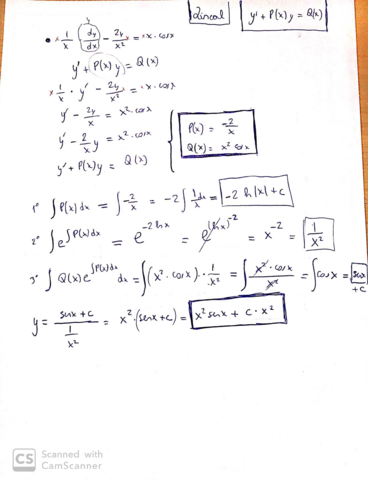 Lineal
y' + P(x) y = Q(x)
• x 1/x · dy/dx - 2y/x² x = x x · cosx
y'
y' + P(x) y = Q(x)
x 1/x · y' - 2y/x² x = · x · cosx
y' - 2y/x = x² · cosx
y' - 2/x y = x² · cosx
y' + P(x) y = Q(x)
P(x) = -2/x
Q(x) = x² cosx
1º ∫ P(x) dx = ∫ -2/x = -2 ∫ 1/x dx = -2 ln |x| + c
2º ∫ e^∫P(x)dx = e^(-2 lnx) = e^(lnx)^-2 = x^-2 = 1/x²
3º ∫ Q(x) e^∫P(x)dx dx = ∫ (x² · cosx) · 1/x² = ∫ x² · cosx / x² = ∫ cosx = senx + c
y = senx + c / 1/x² = x² · (senx + c) = x² senx + c · x²
CS Scanned with
CamScanner